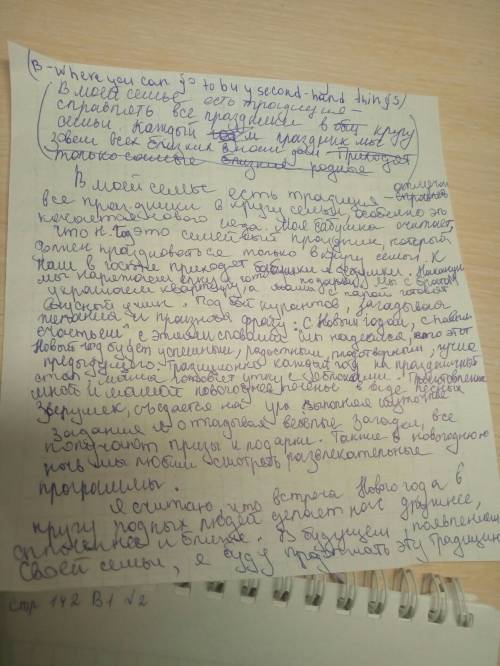 (B - Where you can go to buy second-hand things)
В моей семье есть традиция -
справлять все праздники в кругу
семьи. Каждый праздник мы
зовем всех близких в наш дом. Приходят
только самые близкие родные
В моей семье есть традиция - отмечать
все праздники в кругу семьи, особенно это
касается нового года. Моя бабушка считает,
что Н. Год это семейный праздник, который
должен праздноваться только в кругу семьи. К
нам в гости приходят бабушки и дедушки. Накануне
мы наряжаем ёлку, подарки, мы с братом
украшаем квартиру, а мама с папой готовят
вкусный ужин. Под бой курантов, загадывая
желания и произнося фразу: "С Новым годом, с новым
счастьем" с этими словами мы надеемся, что этот
Новый год будет успешным, радостным, плодотворным,
предыдущего. Традиционно каждый год на праздничный
стол мама готовит утку с яблоками.
мной и мамой новогоднее печенье в виде лесных
зверушек, съедается на ура. Выполняя шуточные
задания и отгадывая весёлые загадки, все
получают призы и подарки. Также в новогоднюю
ночь мы любим смотреть развлекательные
программы.
Я считаю, что встреча Нового года в
кругу родных людей делает нас дружнее,
сплочённее и ближе. В будущем, с появлением
своей семьи, я буду продолжать эту традицию
стр 142 В1 √2